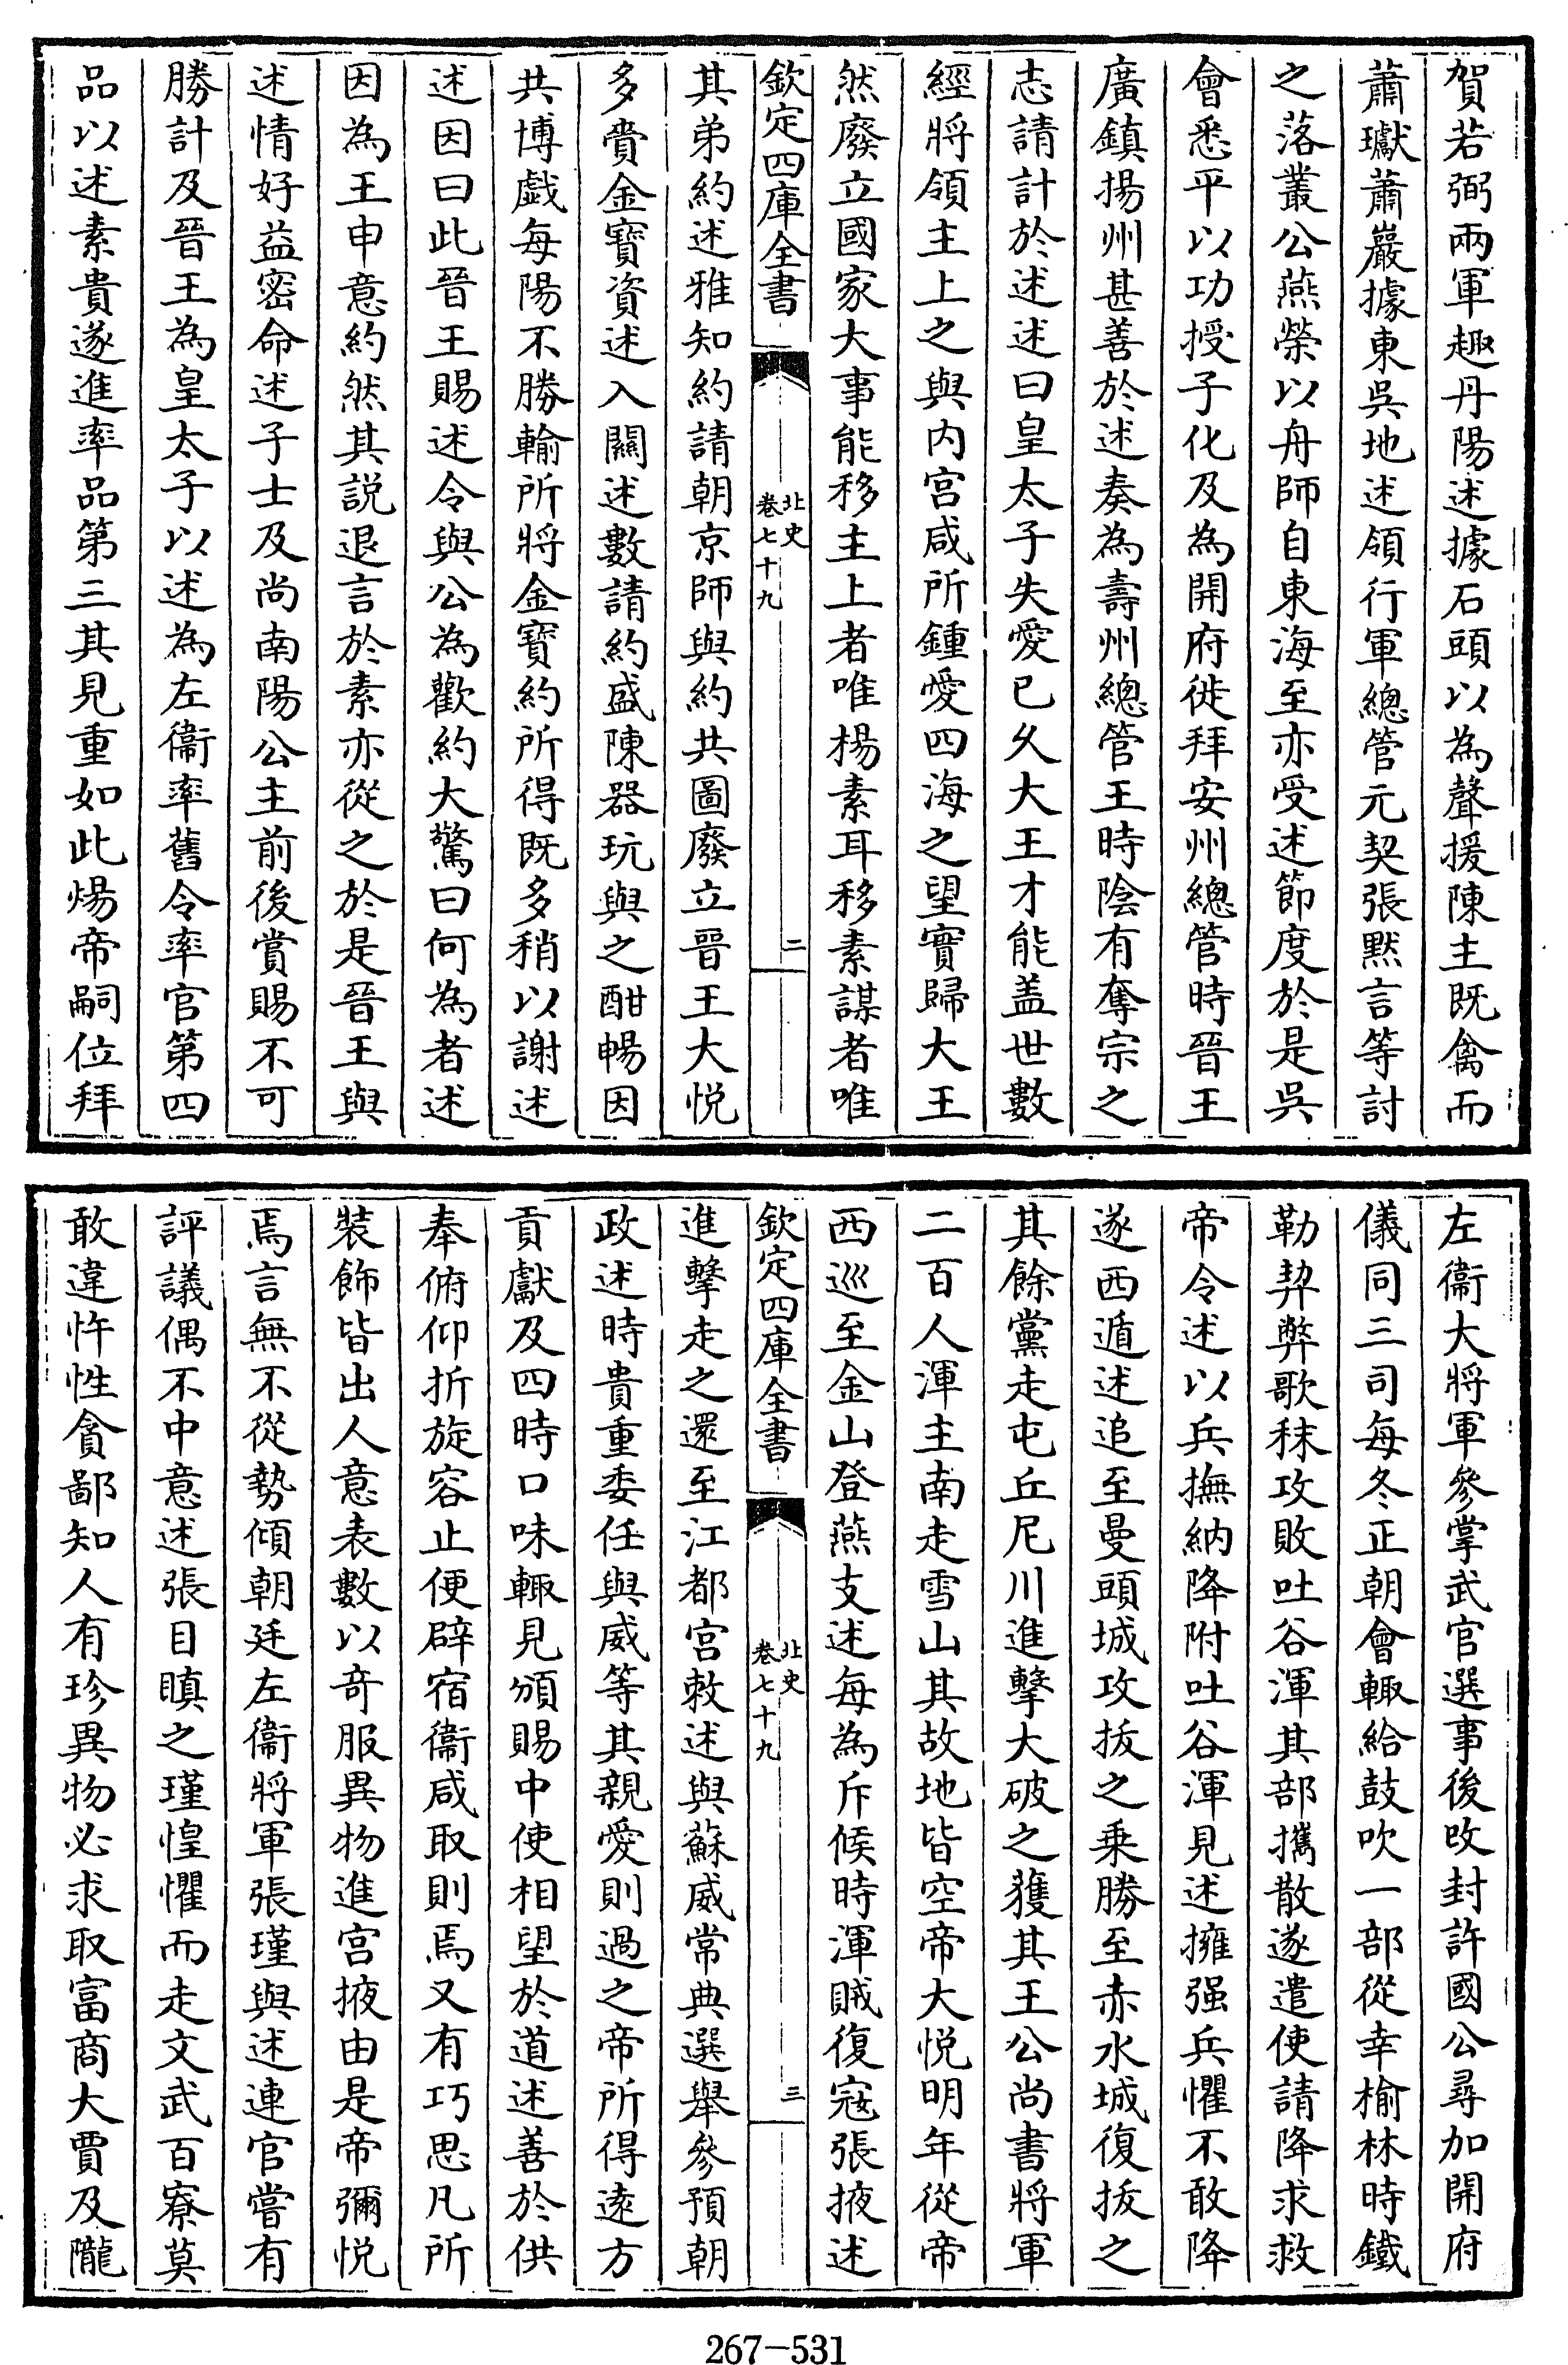 賀若弼兩軍趣丹陽述據石頭以為聲援陳主既禽而
蕭瓛蕭巖據東吳地述領行軍總管元契張默言等討
之落叢公燕榮以舟師自東海至亦受述節度於是吳
會悉平以功授子化及為開府徙拜安州總管時晉王
廣鎮揚州甚善於述奏為壽州總管王時陰有奪宗之
志請計於述述曰皇太子失愛已久大王才能盖世數
經將領主上之與内宫咸所鍾愛四海之望實歸大王
然廢立國家大事能移主上者唯楊素耳移素謀者唯
欽定四庫全書
北史
卷七十九
二
其弟約述雅知約請朝京師與約共圖廢立晉王大悦
多賫金寶資述入關述數請約盛陳器玩與之酣暢因
共博戯每陽不勝輸所將金寶約所得既多稍以謝述
述因曰此晉王賜述令與公為歡約大驚曰何為者述
因為王申意約然其説退言於素亦從之於是晉王與
述情好益密命述子士及尚南陽公主前後賞賜不可
勝計及晉王為皇太子以述為左衞率舊令率官第四
品以述素貴遂進率品第三其見重如此煬帝嗣位拜
左衞大將軍參掌武官選事後改封許國公尋加開府
儀同三司每冬正朝會輙給鼓吹一部從幸榆林時鐵
勒契弊歌秣攻敗吐谷渾其部攜散遂遣使請降求救
帝令述以兵撫納降附吐谷渾見述擁强兵懼不敢降
遂西遁述追至曼頭城攻拔之乗勝至赤水城復拔之
其餘黨走屯丘尼川進擊大破之獲其王公尚書將軍
二百人渾主南走雪山其故地皆空帝大悦明年從帝
西巡至金山登燕支述每為斥候時渾賊復寇張掖述
欽定四庫全書
北史
卷七十九
三
進擊走之還至江都宫敕述與蘇威常典選舉參預朝
政述時貴重委任與威等其親愛則過之帝所得逺方
貢獻及四時口味輙見頒賜中使相望於道述善於供
奉俯仰折旋容止便辟宿衞咸取則焉又有巧思凡所
裝飾皆出人意表數以奇服異物進宫掖由是帝彌悦
焉言無不從勢傾朝廷左衞將軍張瑾與述連官嘗有
評議偶不中意述張目瞋之瑾惶懼而走文武百寮莫
敢違忤性貪鄙知人有珍異物必求取富商大賈及隴
267-531